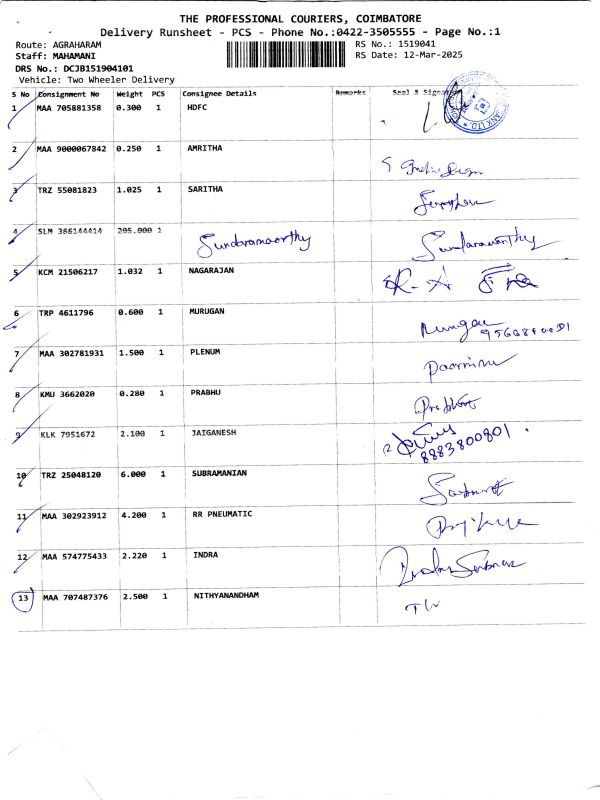 THE PROFESSIONAL COURIERS, COIMBATORE
Delivery Runsheet - PCS - Phone No.:0422-3505555 - Page No.:1
Route: AGRAHARAM RS No.: 1519041
Staff: MAHAMANI RS Date: 12-Mar-2025
DRS No.: DCJB151904101
Vehicle: Two Wheeler Delivery
S No Consignment No Weight PCS Consignee Details Remarks Seal & Signature
1 MAA 705881358 0.300 1 HDFC
2 MAA 9000067842 0.250 1 AMRITHA
3 TRZ 55081823 1.025 1 SARITHA
4 SLM 366144414 205.000 1 Sundaramoorthy Sundaramoorthy
5 KCM 21506217 1.032 1 NAGARAJAN
6 TRP 4611796 0.600 1 MURUGAN Murugan
7 MAA 302781931 1.500 1 PLENUM Poornima
8 KMU 3662020 0.280 1 PRABHU Prabhu
9 KLK 7951672 2.100 1 JAIGANESH
8883800801
10 TRZ 25048120 6.000 1 SUBRAMANIAN
11 MAA 302923912 4.200 1 RR PNEUMATIC
12 MAA 574775433 2.220 1 INDRA
13 MAA 707487376 2.500 1 NITHYANANDHAM